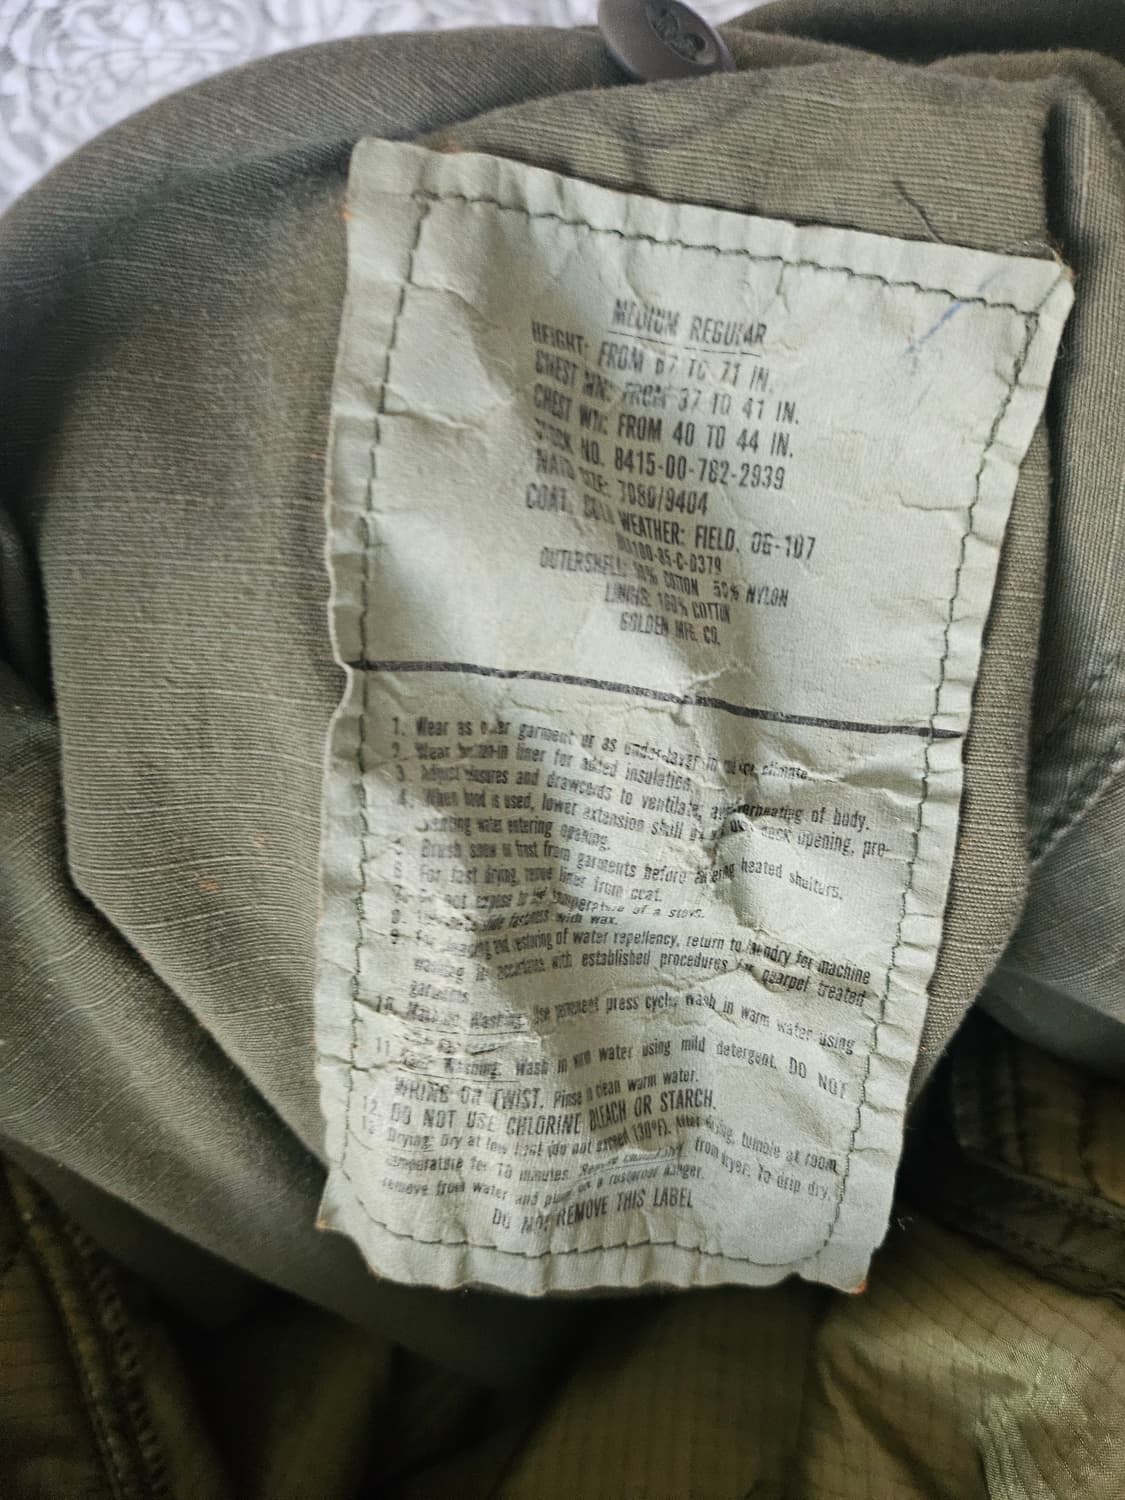 MEDIUM REGULAR
HEIGHT: FROM 67 TO 71 IN.
CHEST MN: FROM 37 TO 41 IN.
CHEST FROM 40 TO 44 IN.
STOCK NO. 8415-00-782-2939
NATO SIZE: 7080/9404
COAT, COLD WEATHER: FIELD, OG-107
100-85-C-0379
OUTERSHELL: 50% COTTON 50% NYLON
LINING: 100% COTTON
GOLDEN MFG. CO.
1. Wear as over garment or as under-layer in climate.
2. Wear button-in liner for added insulation.
3. Adjust closures and drawcords to ventilate, overheating of body.
4. When hood is used, lower extension shall neck opening, pre-
venting water entering opening.
5. Brush snow or frost from garments before entering heated shelters.
6. For fast drying, remove liner from coat.
7. Do not expose to temperature of a stove.
8. slide fasteners with wax.
9. For and restoring of water repellency, return to laundry for machine
washing in accordance with established procedures for quarpel treated
garments.
10. Machine Washing: Use permanent press cycle, wash in warm water using
11. Hand Washing: Wash in warm water using mild detergent. DO NOT
WRING OR TWIST. Rinse in clean warm water.
12. DO NOT USE CHLORINE BLEACH OR STARCH.
13. Drying: Dry at low heat (do not exceed 130°F). After drying, tumble at room
temperature for 10 minutes. Remove from dryer. To drip dry,
remove from water and place on a rustproof hanger.
DO NOT REMOVE THIS LABEL